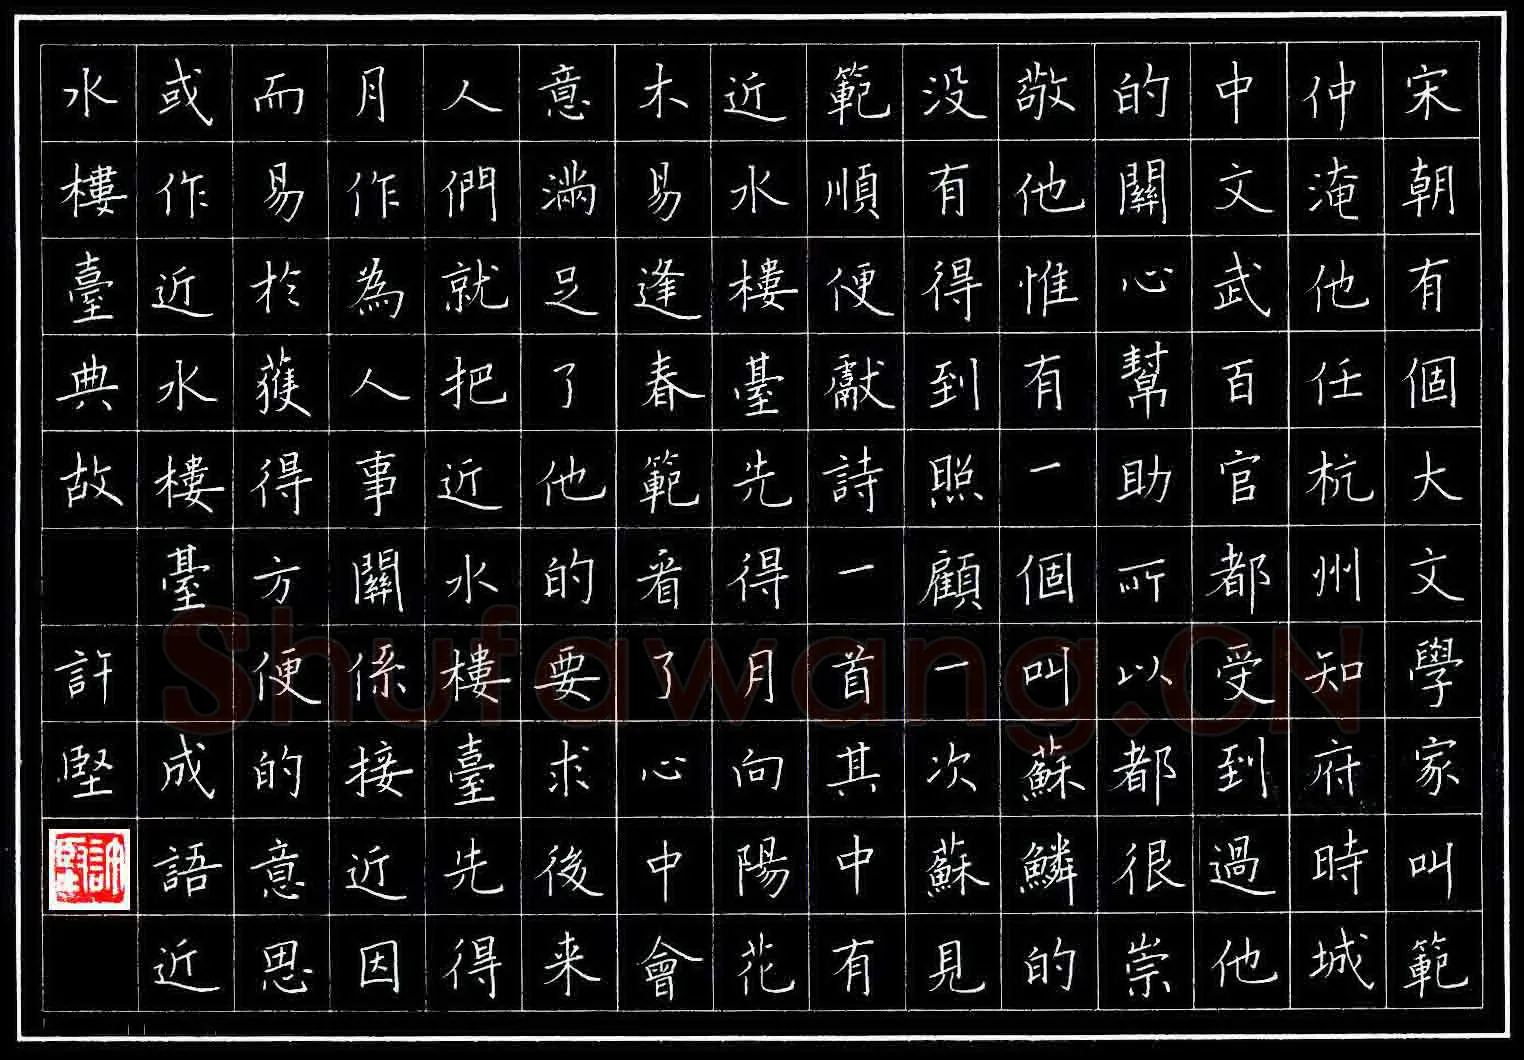 宋朝有個大文學家叫範
仲淹他任杭州知府時城
中文武百官都受到過他
的關心幫助所以都很崇
敬他惟有一個叫蘇鱗的
没有得到照顧一次蘇見
範順便獻詩一首其中有
近水樓臺先得月向陽花
木易逢春範看了心中會
意滿足了他的要求後来
人們就把近水樓臺先得
月作為人事關係接近因
而易於獲得方便的意思
或作近水樓臺 成語近
水樓臺典故 許堅
Shufawang.CN